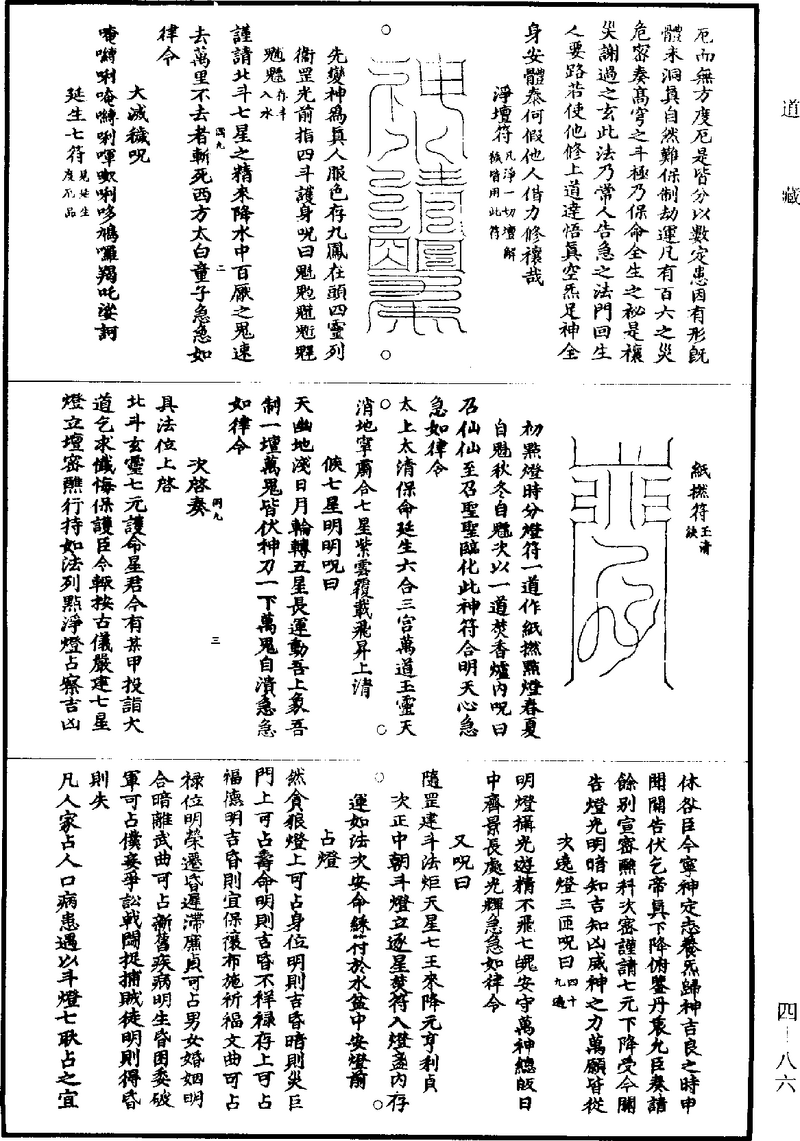 道藏
厄而無方度厄是皆分以數定患因有形既
體未洞眞自然難保制劫運凡有百六之災
危密奏髙穹之斗極乃保命全生之祕是禳
災謝過之玄此法乃常人告急之法門回生
人要路若使他修上道達悟眞空炁足神全
身安體泰何假他人借力修禳哉
淨壇符凡淨一切壇解穢皆用此符
先變神爲眞人服色存九鳳在頭四靈列
衞罡光前指四斗護身呪曰
存斗入水
謹請北斗七星之精來降水中百厭之鬼速
去萬里不去者斬死西方太白童子急急如
律令
大滅穢呪
延生七符見延生度厄品
紙撚符玉清訣
初點燈時分燈符一道作紙撚點燈春夏
自魁秋冬自魒次以一道焚香爐内呪曰
召仙仙至召聖聖臨化此神符合明天心急
急如律令
太上太清保命延生六合三宫萬道玉靈天
消地寧肅合七星紫雲覆載飛昇上清
候七星明明呪曰
天幽地淺日月輪轉五星長運動吾上象吾
制一壇萬鬼皆伏神刀一下萬鬼自潰急急
如律令
次啓奏
三
具法位上啓
北斗玄靈七元護命星君今有某甲投詣大
道乞求懺悔保護臣今輒按古儀嚴建七星
燈立壇密醮行持如法列點淨燈占察吉凶
休咎臣今寧神定志養炁歸神吉良之時申
聞開告伏乞帝眞下降俯鑒丹衷允臣奏請
餘别宣密醮科次密謹請七元下降受今開
告燈光明暗知吉知凶威神之力萬願皆從
次遶燈三匝呪曰四十九遍
明燈攝光遊精不飛七魄安守萬神總皈日
中齊景長處光輝急急如律令
又呪曰
隨罡建斗法炬天星七王來降元亨利貞
次正中朝斗燈立逐星焚符入燈盞内存
運如法次安命綵符於水盆中安燈前
占燈
然貪狼燈上可占身位明則吉昏暗則災巨
門上可占壽命明則吉昏不祥禄存上可占
福德明吉昏則宜保禳布施祈福文曲可占
禄位明榮遷昏遲滯廉貞可占男女婚姻明
合暗離武曲可占新舊疾病明生昏困委破
軍可占僕妾爭訟戰鬬捉捕賊徒明則得昏
則失
凡人家占人口病患遇以斗燈七耿占之宜
四-八六